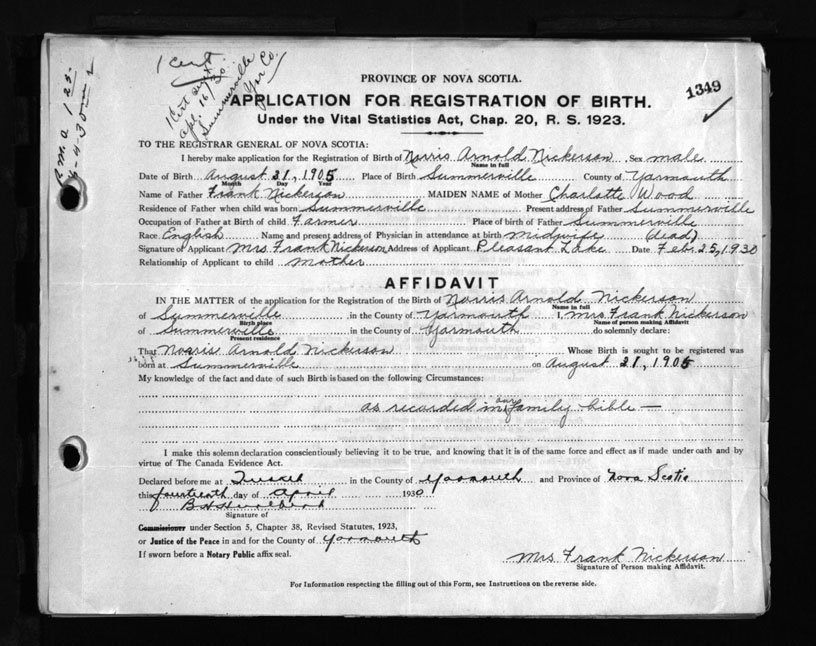 1 Cert
1 Cert sent
Apl. 16/30
Summerville
Yar Co.
R.M.O. 1 25
PROVINCE OF NOVA SCOTIA.
1349
APPLICATION FOR REGISTRATION OF BIRTH.
Under the Vital Statistics Act, Chap. 20, R. S. 1923.
TO THE REGISTRAR GENERAL OF NOVA SCOTIA:
I hereby make application for the Registration of Birth of Norris Arnold Nickerson Sex male
Name in full
Date of Birth August 31, 1905 Place of Birth Summerville County of Yarmouth
Month Day Year
Name of Father Frank Nickerson MAIDEN NAME of Mother Charlotte Wood
Residence of Father when child was born Summerville Present address of Father Summerville
Occupation of Father at Birth of child Farmer Place of birth of Father Summerville
Race English Name and present address of Physician in attendance at birth Midwife (dead)
Signature of Applicant Mrs Frank Nickerson Address of Applicant Pleasant Lake Date Feb. 25, 1930
Relationship of Applicant to child mother
AFFIDAVIT
IN THE MATTER of the application for the Registration of the Birth of Norris Arnold Nickerson
Name in full
of Summerville in the County of Yarmouth I, Mrs Frank Nickerson
Birth place Name of person making Affidavit
of Summerville in the County of Yarmouth do solemnly declare:
Present residence
That Norris Arnold Nickerson Whose Birth is sought to be registered was
born at Summerville on August 31, 1905
My knowledge of the fact and date of such Birth is based on the following Circumstances:
as recorded in our family bible —
I make this solemn declaration conscientiously believing it to be true, and knowing that it is of the same force and effect as if made under oath and by
virtue of The Canada Evidence Act.
Declared before me at Tusket in the County of Yarmouth and Province of Nova Scotia
this fourteenth day of April 1930
Signature of
Commissioner under Section 5, Chapter 38, Revised Statutes, 1923,
or Justice of the Peace in and for the County of Yarmouth
If sworn before a Notary Public affix seal.
Mrs Frank Nickerson
Signature of Person making Affidavit.
For Information respecting the filling out of this Form, see Instructions on the reverse side.